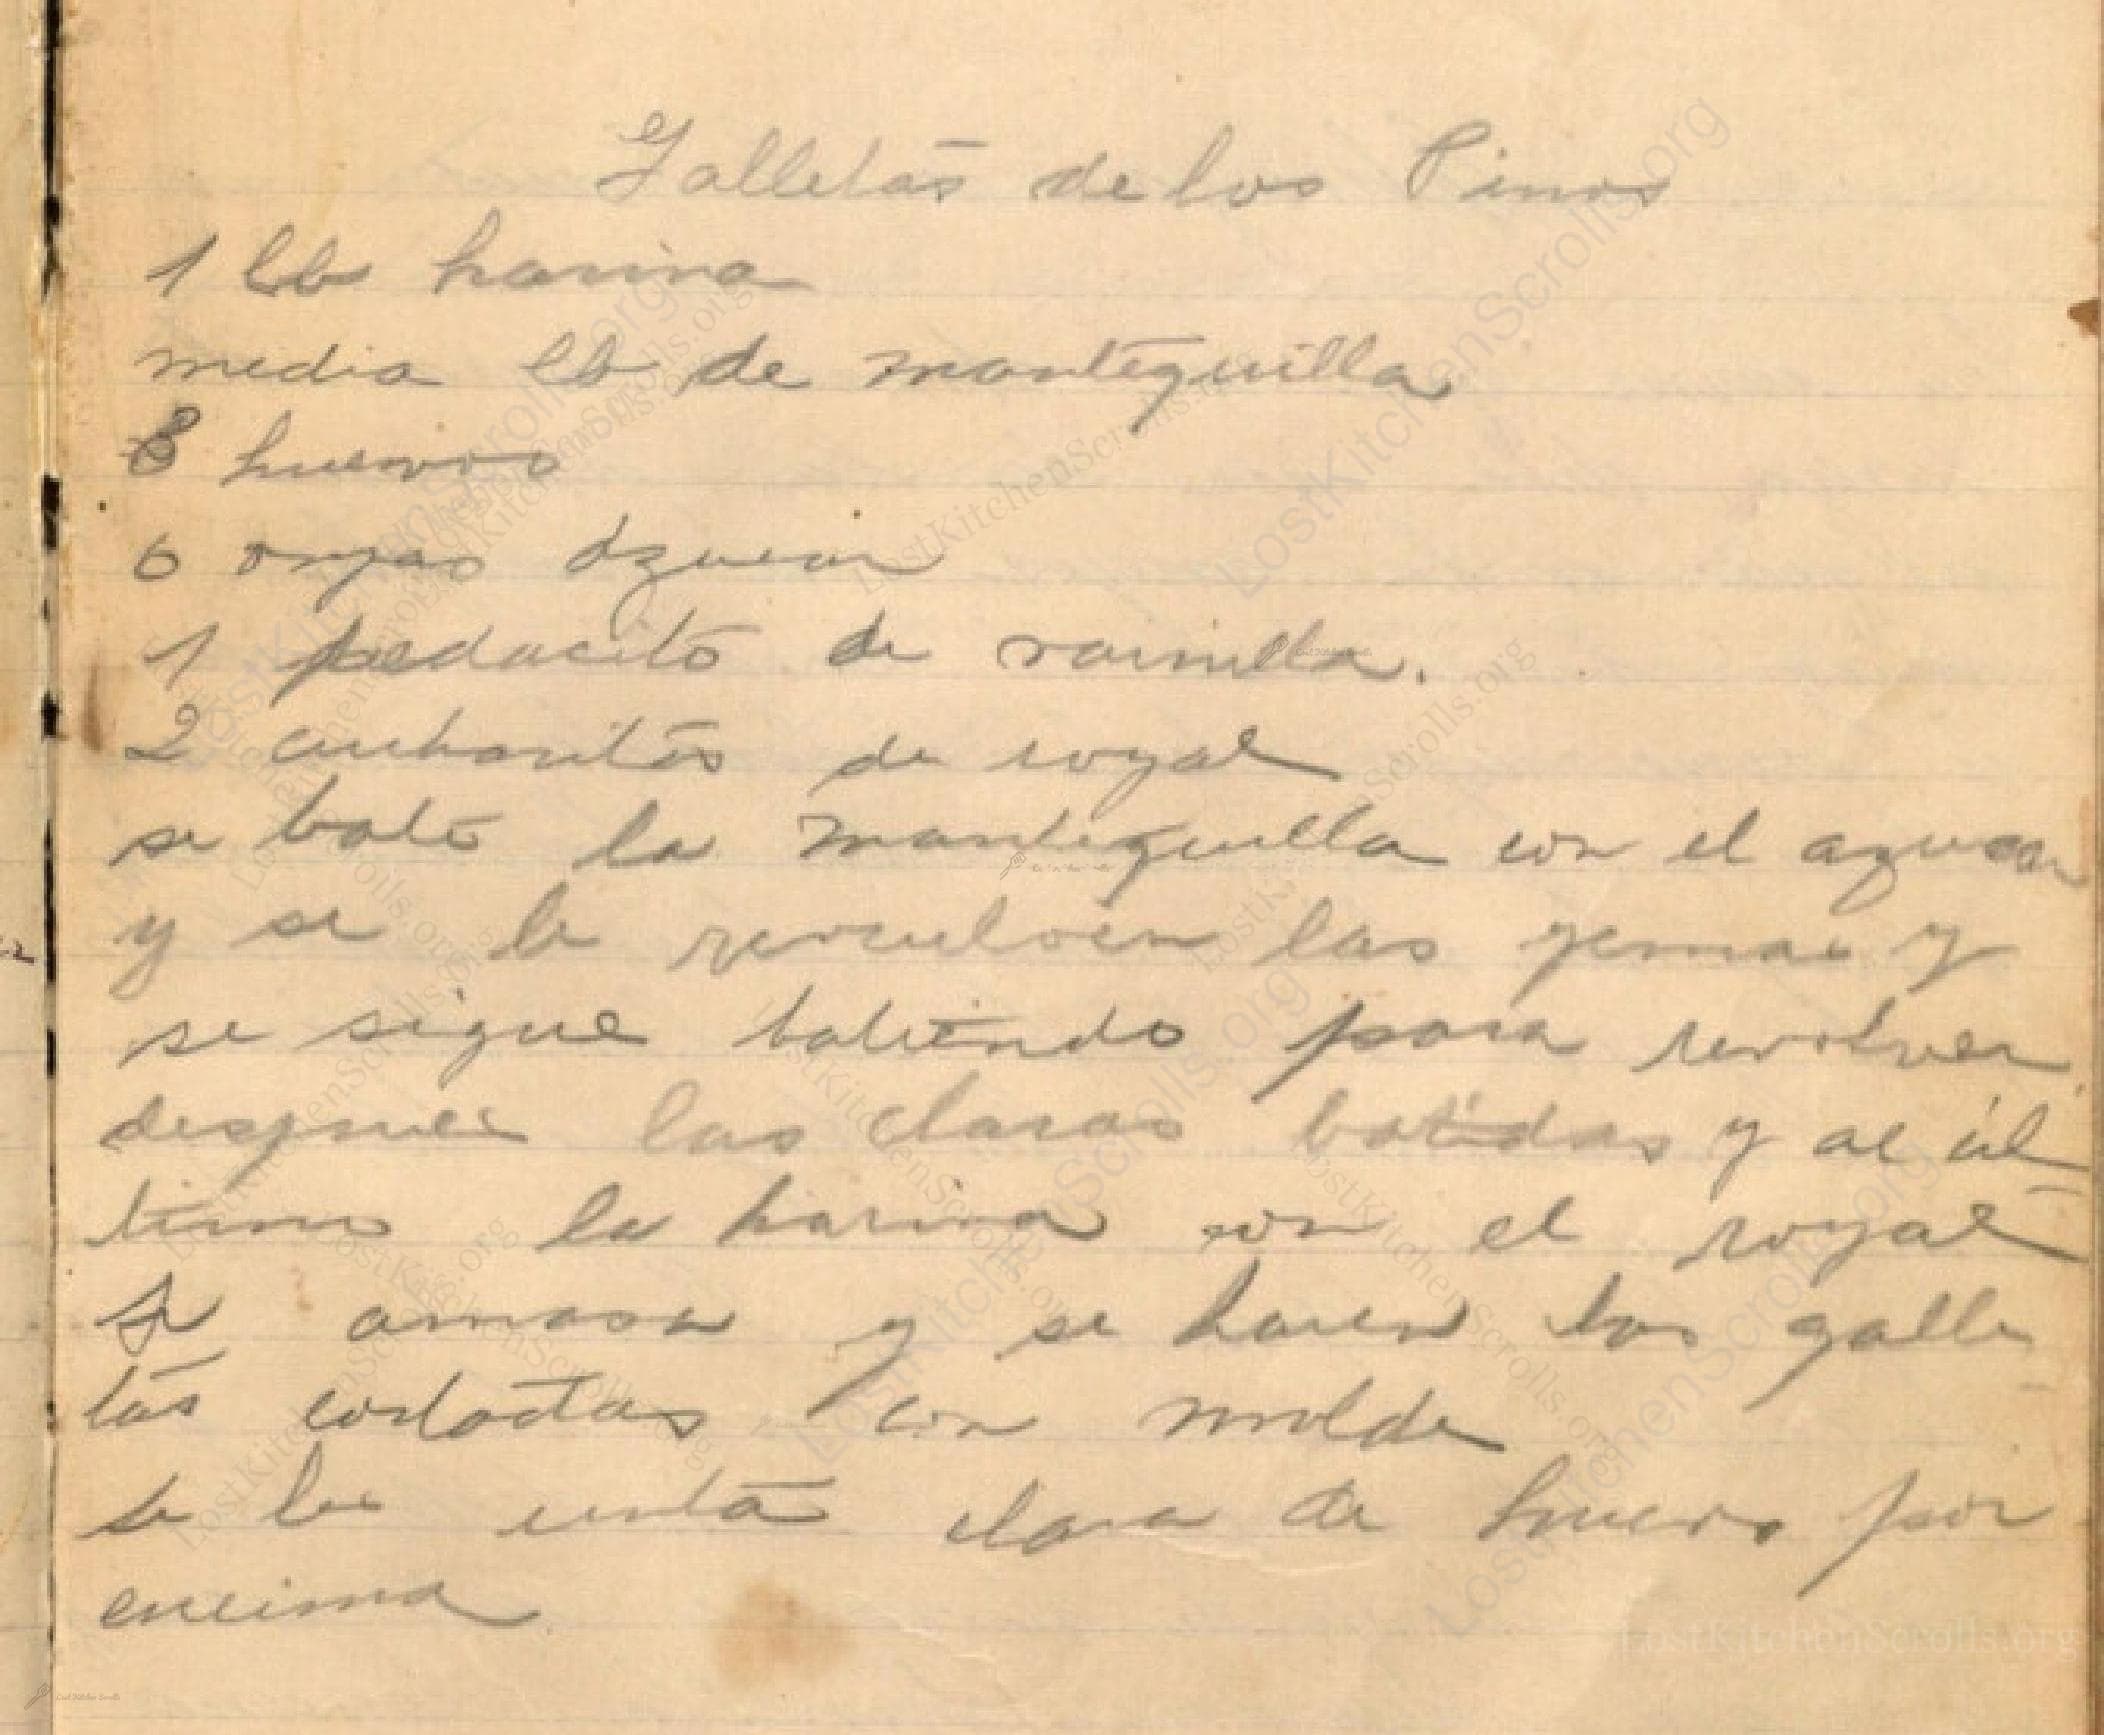 Galletas de los Pinos
1 lb harina
media lb de mantequilla
8 huevos
6 onzas azucar
1 pedacito de vainilla.
2 cucharitas de royal
se bate la mantequilla con el azucar
y se le revuelven las yemas y
se sigue batiendo para revolver
despues las claras batidas y al úl
timo la harina con el royal
se amasa y se hacen las galle
tas cortadas con molde
se les unta clara de huevo por
encima.
LostKitchenScrolls.org